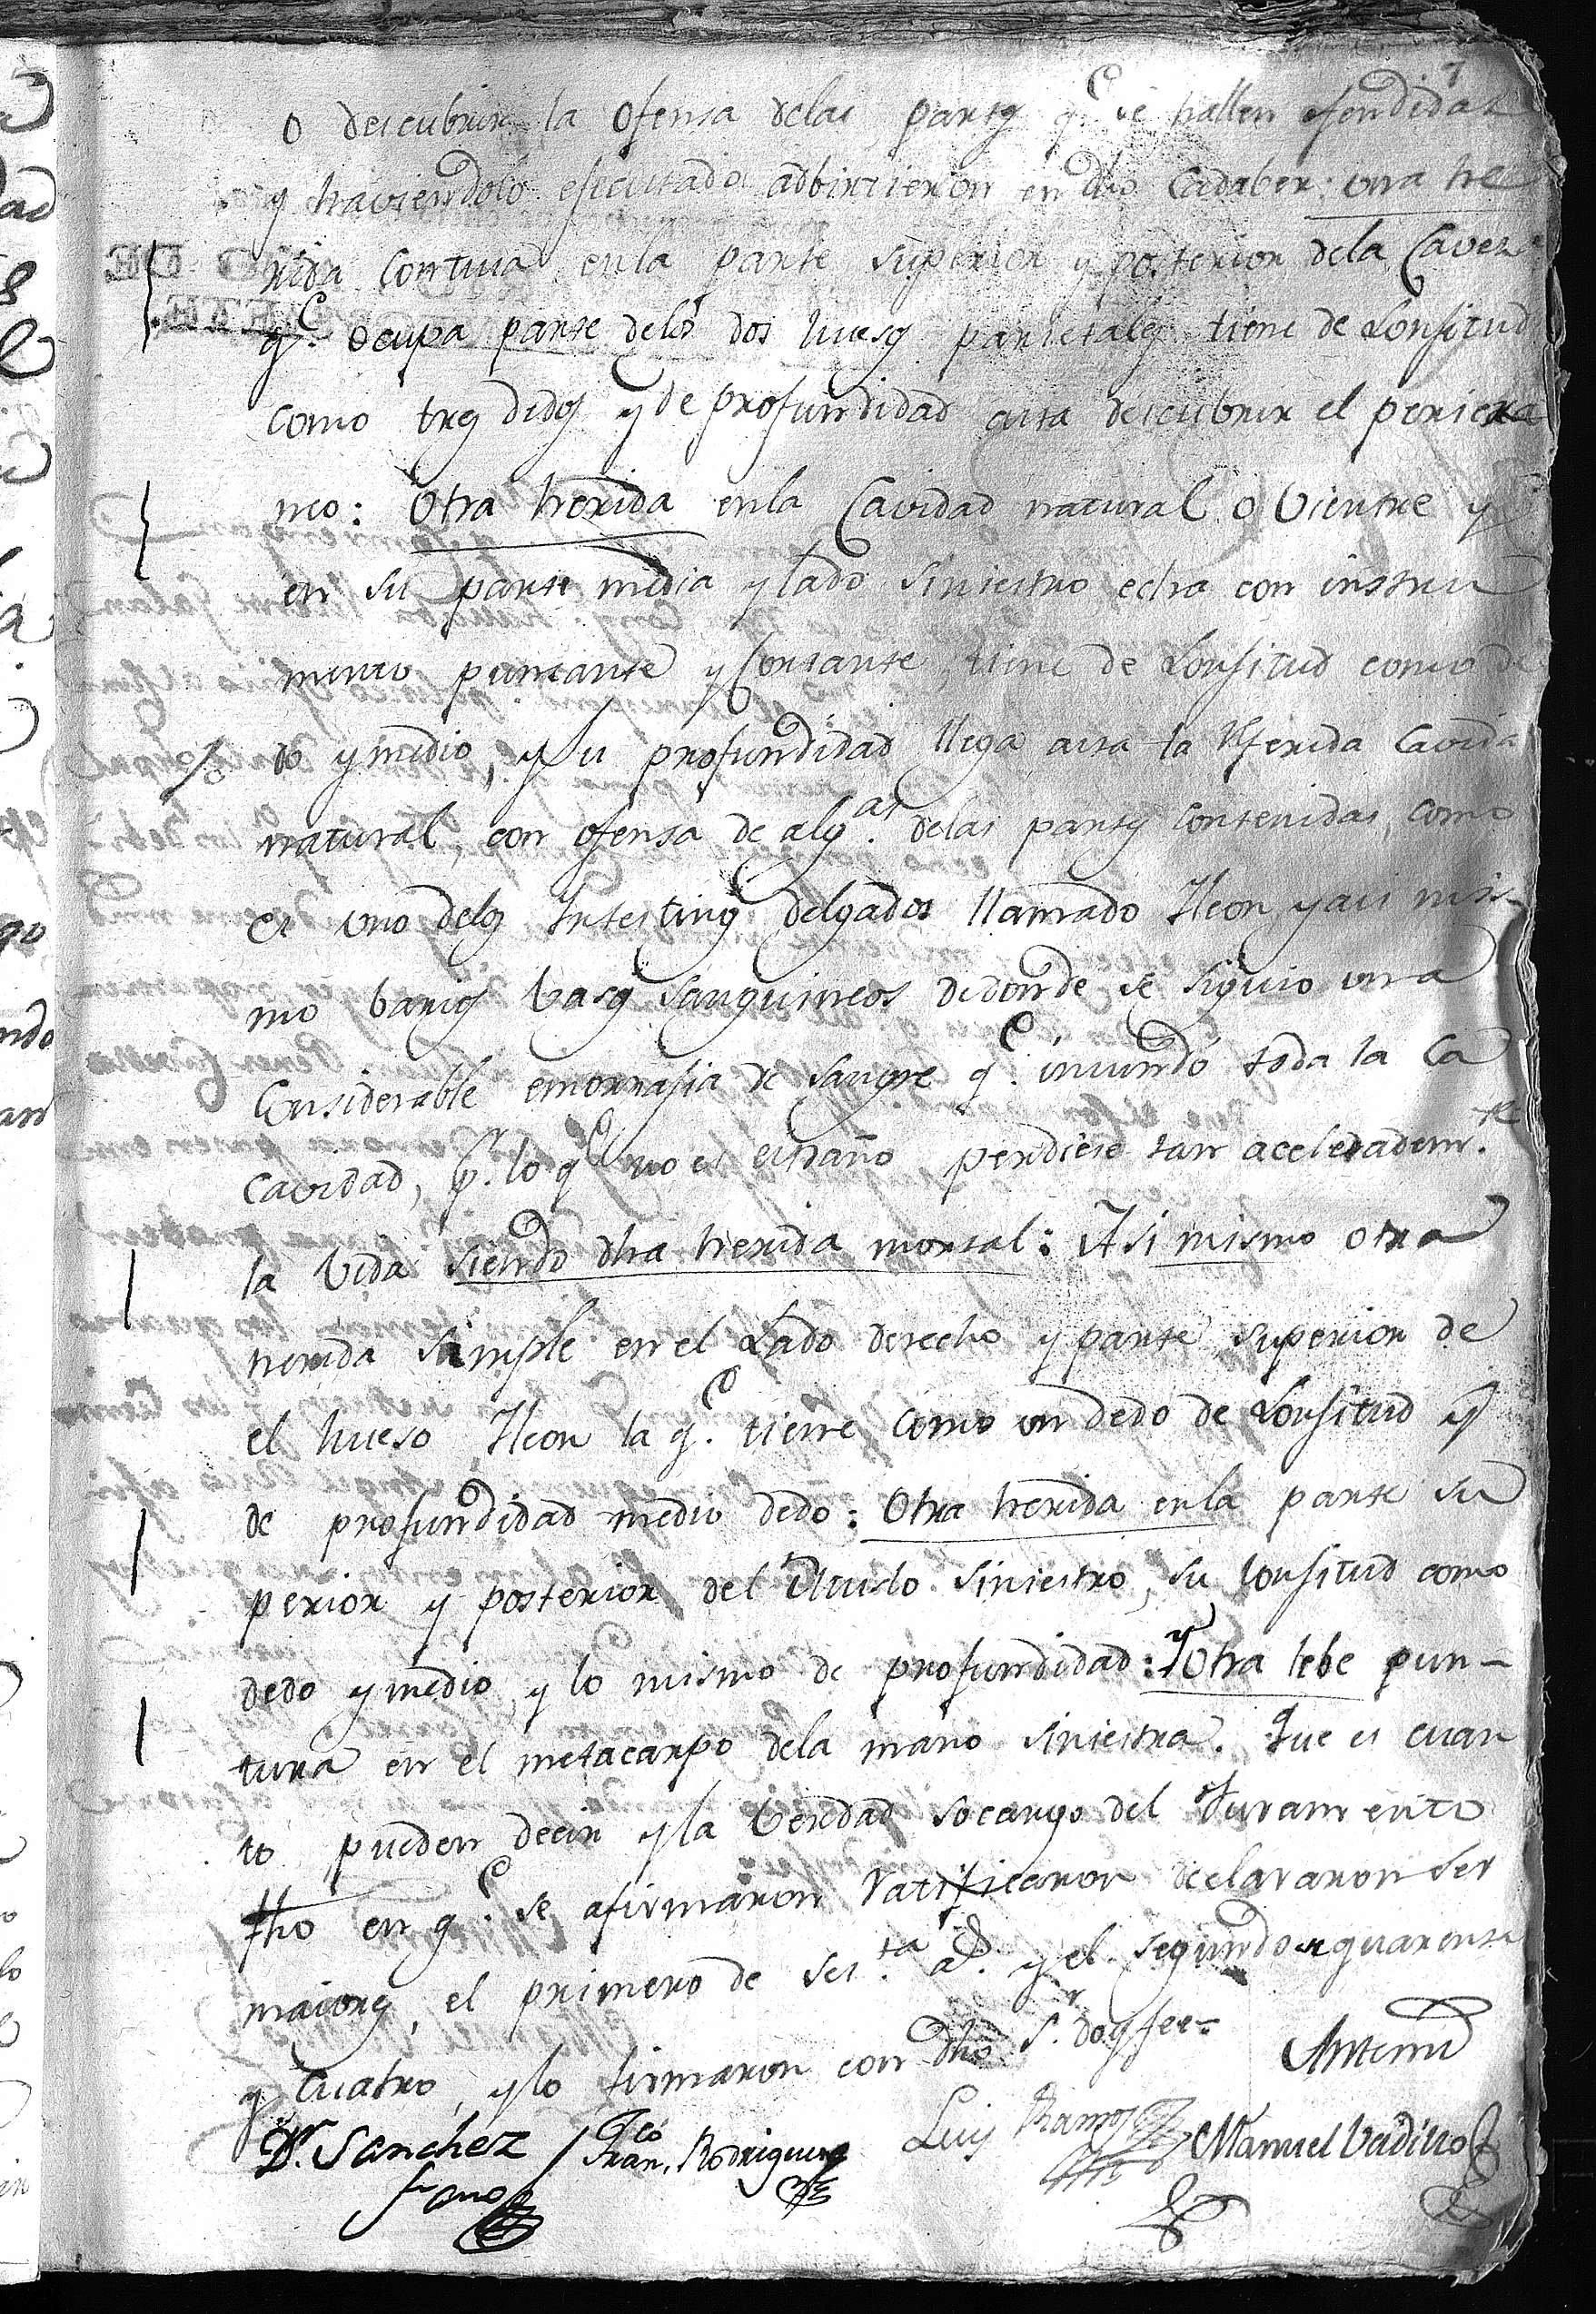 7
o descubrir la ofensa delas partes qe. se hallen ofendidas
y haviendolo efecutado adbirtieron en dho Cadaber: una he
rida Contusa enla parte superior y posterior dela Caveza
qe. ocupa parte delos dos huesos parietales tiene de Lonjitud
como tres dedos y de profundidad asta descubrir el pericra
neo: Otra herida enla Cavidad natural o Vientre y
en su parte media y lado siniestro echa con instru
mento puncante y Cortante, tiene de Lonjitud como de
do y medio, y su profundidad llega asta la Referida Cavida
natural, con ofensa de algas. delas partes contenidas, como
es uno delos Intestinos delgados llamado Ileon, y asi mis-
mo barios basos sanguineos de donde se siguio una
Considerable emorrajia de sangre qe. inundó toda la Ca
cavidad, pr. lo qe no es estraño perdiese tan aceleradamte.
la Vida siendo dha herida mortal: Asi mismo otra
herida simple en el Lado derecho y parte superior de
el hueso Ileon la qe. tiene Como un dedo de Lonjitud y
de profundidad medio dedo: Otra herida enla parte su
perior y posterior del Muslo siniestro, su lonjitud como
dedo y medio, y lo mismo de profundidad: y Otra lebe pun-
tura en el metacarpo dela mano siniestra. Que es cuan
to pueden decir y la berdad socargo del Juramento
fho en qe. se afirmaron Ratificaron declararon ser
maiores, el primero de sesta. as. y el segundo de quarenta
y Cuatro, y lo firmaron con dho Sr. doy fee=
Antemi
Dr. Sanchez / Franco. Rodriguez Luis Ramos Manuel Vadillo